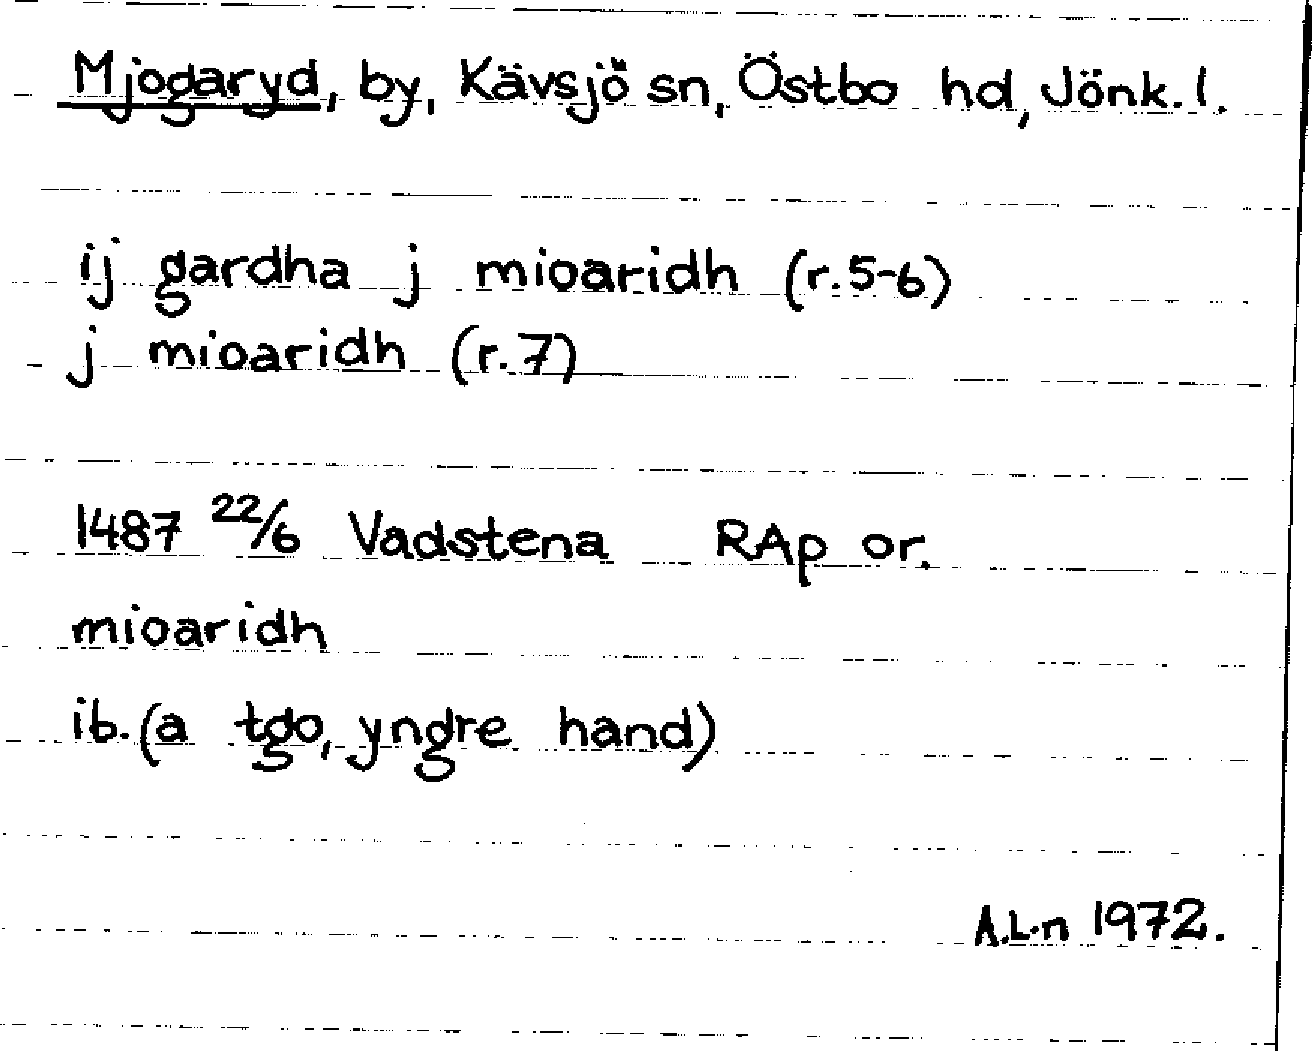 Mjogaryd, by, Kävsjö sn, Östbo hd, Jönk. l.
ij gardha j mioaridh (r. 5-6)
j mioaridh (r. 7)
1487 22/6 Vadstena RAp or.
mioaridh
ib. (a tgo, yngre hand)
A.L-n 1972.